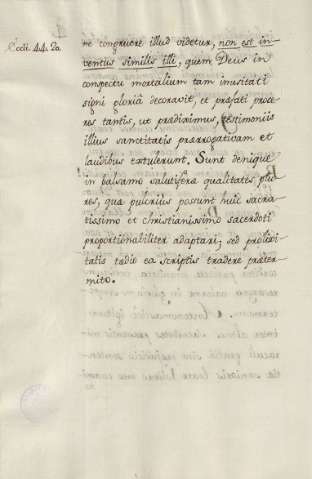 Eccli. 44. 20.
ne congruere illud videtur, non est in-
ventus similis illi, quem Deus in
conspectu mortalium tam inusitati
signi gloria decoravit, et præfati proce-
res tantis, ut prædiximus, testimoniis
illius sanctitatis prærrogativam et
laudibus extulerunt. Sunt denique
in balsamo salutiferæ qualitates plu-
res, quæ pulcrius possunt huic sacra-
tissimo et christianissimo sacerdoti
proportionabiliter adaptari; sed prolixi-
tatis tædio ea scriptis tradere præter-
mito.